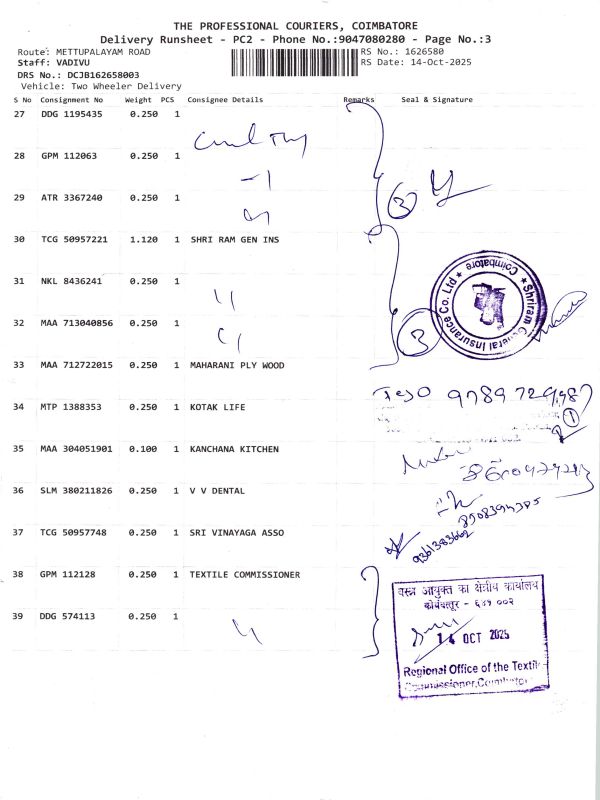 THE PROFESSIONAL COURIERS, COIMBATORE
Delivery Runsheet - PC2 - Phone No.:9047080280 - Page No.:3
Route: METTUPALAYAM ROAD
RS No.: 1626580
Staff: VADIVU
RS Date: 14-Oct-2025
DRS No.: DCJB162658003
Vehicle: Two Wheeler Delivery
S No Consignment No Weight PCS Consignee Details Remarks Seal & Signature
27 DDG 1195435 0.250 1
28 GPM 112063 0.250 1
29 ATR 3367240 0.250 1
3
30 TCG 50957221 1.120 1 SHRI RAM GEN INS
31 NKL 8436241 0.250 1
Shriram General Insurance Co. Ltd ★ Coimbatore ★
32 MAA 713040856 0.250 1
3
33 MAA 712722015 0.250 1 MAHARANI PLY WOOD
34 MTP 1388353 0.250 1 KOTAK LIFE
1
35 MAA 304051901 0.100 1 KANCHANA KITCHEN
36 SLM 380211826 0.250 1 V V DENTAL
37 TCG 50957748 0.250 1 SRI VINAYAGA ASSO
38 GPM 112128 0.250 1 TEXTILE COMMISSIONER
वस्त्र आयुक्त का क्षेत्रीय कार्यालय
कोयंबत्तूर - ६४१ ००२
39 DDG 574113 0.250 1
14 OCT 2025
Regional Office of the Textile
Commissioner, Coimbatore